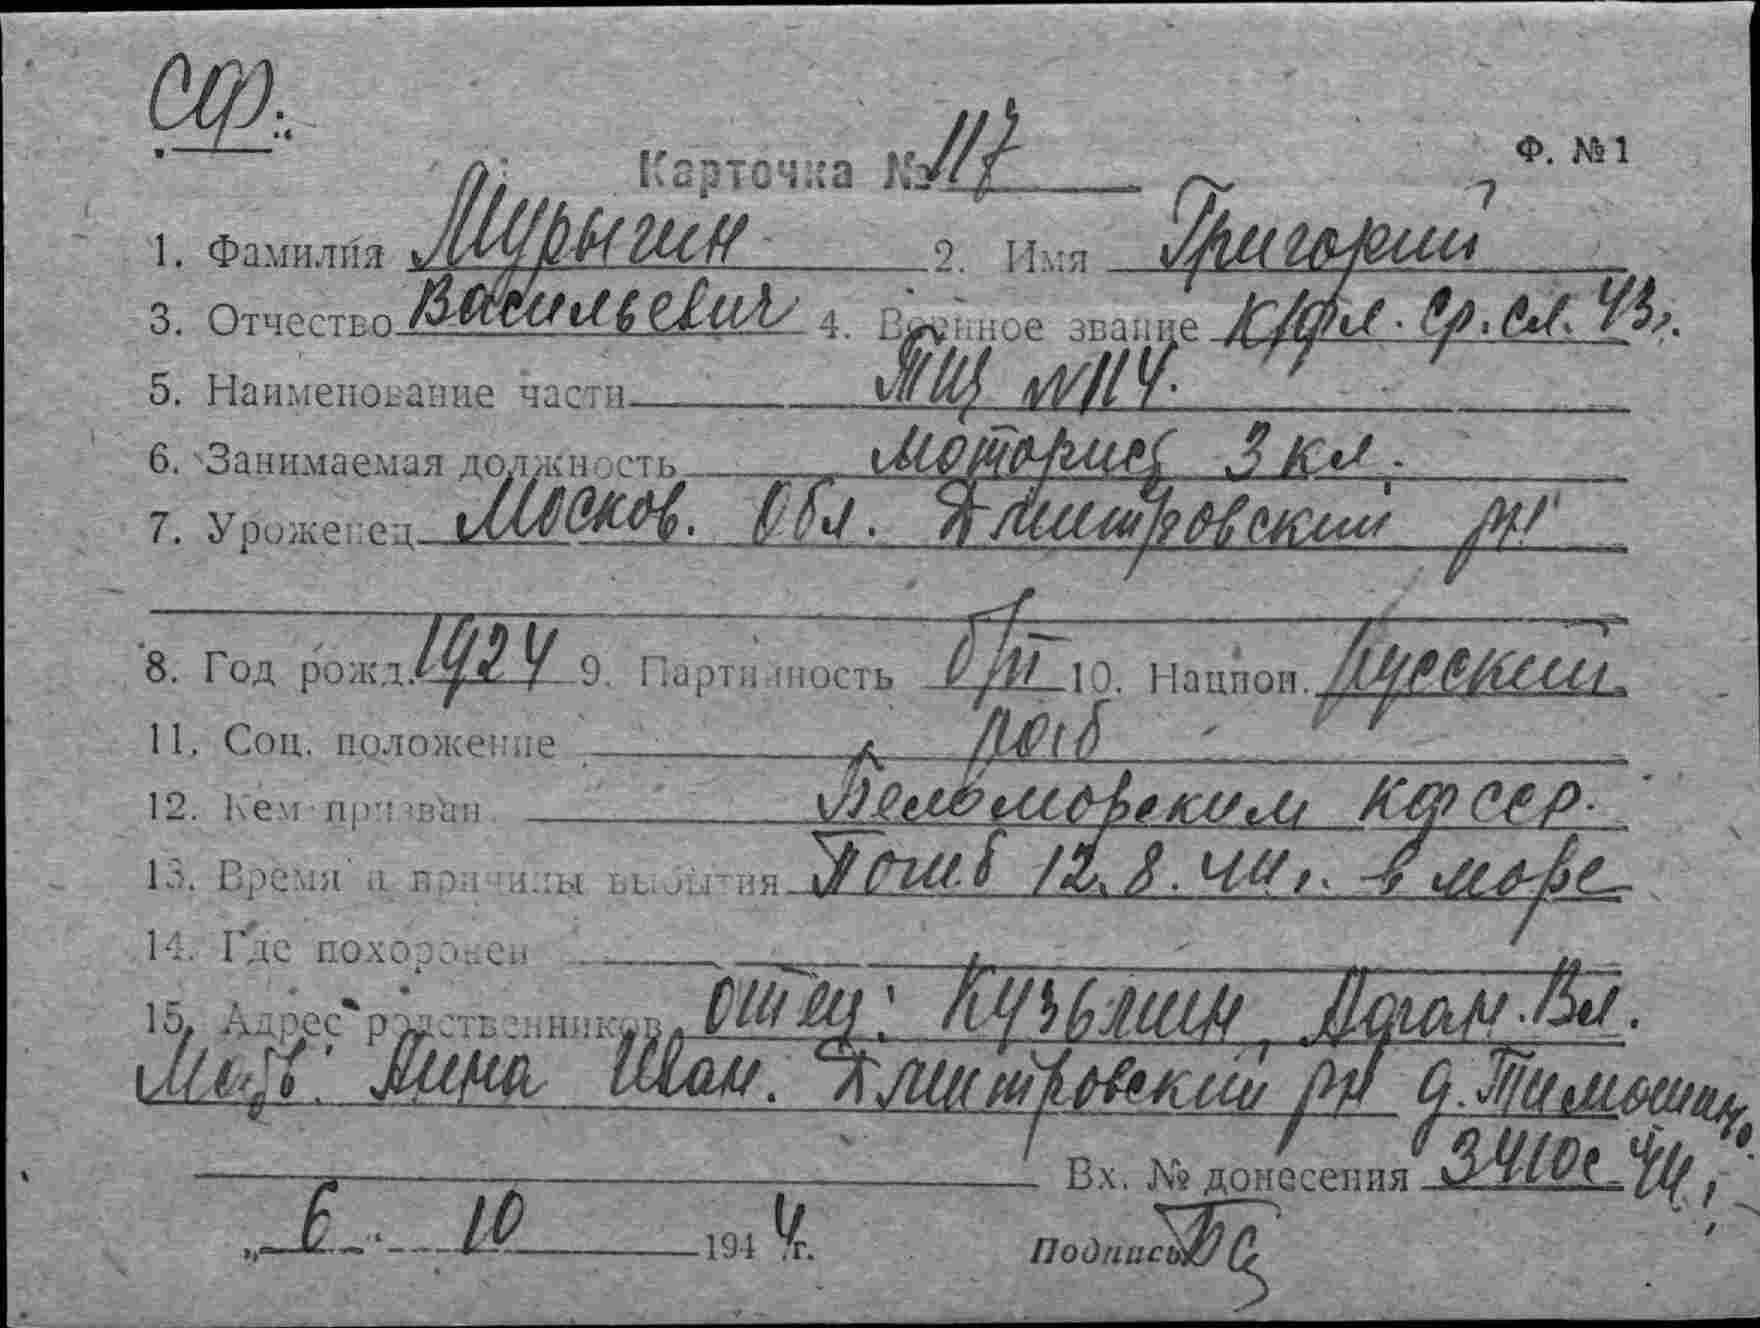 СФ.
Карточка № 117
Ф. № 1
1. Фамилия Мурыгин 2. Имя Григорий
3. Отчество Васильевич 4. Военное звание К/фл. ср. сл. 43г.
5. Наименование части ТЩ № 114.
6. Занимаемая должность моторист 3 кл.
7. Уроженец Москов. обл. Дмитровский рн
8. Год рожд. 1924 9. Партийность б/п 10. Национ. русский
11. Соц. положение раб
12. Кем призван Беломорским
13. Время и причины выбытия Погиб 12.8.44г. в море
14. Где похоронен
15. Адрес родственников отец: Кузьмин Вл.
Мать: Анна Иван. Дмитровский рн д.
Вх. № донесения 3410с 44г
„ 6 " 10 1944г. Подпись